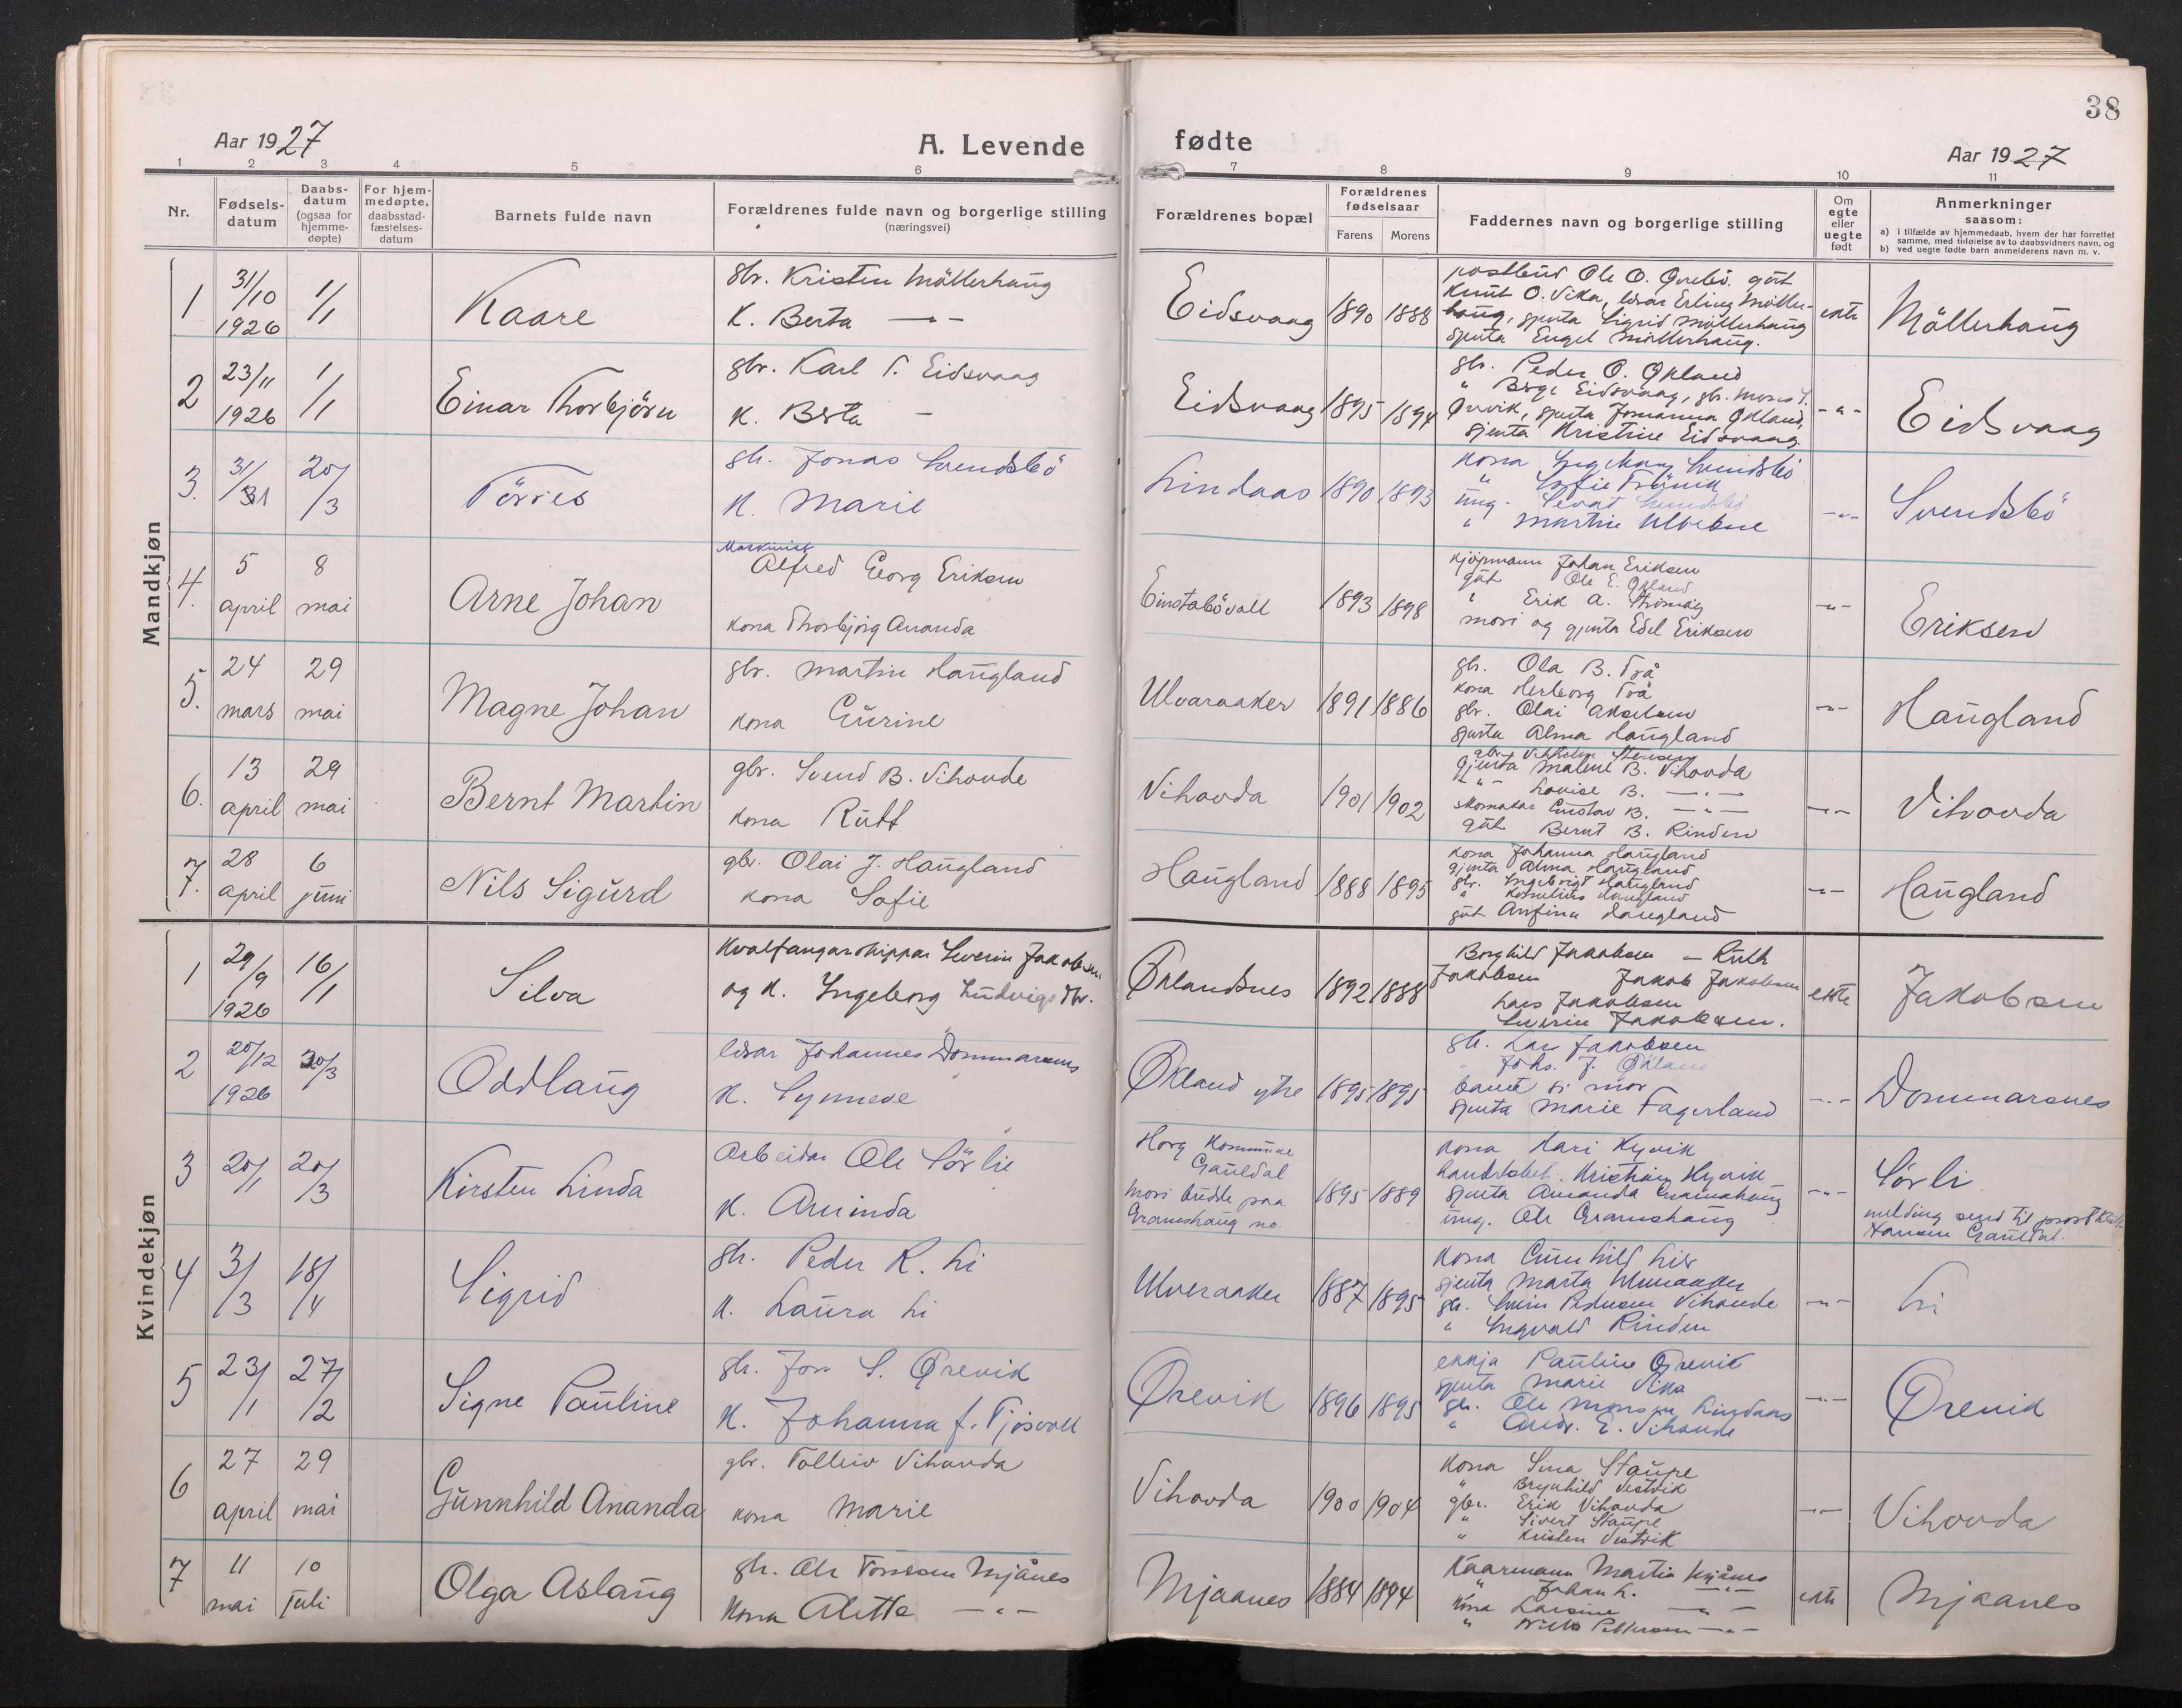 38
Aar 1927
A. Levende
fødte
Aar 1927
1 2 3 4 5 6 7 8 9 10 11
Nr.
Fødsels-
datum
Daabs-
datum
(ogsaa for
hjemme-
døpte)
For hjem-
medøpte,
daabsstad-
fæstelses-
datum
Barnets fulde navn
Forældrenes fulde navn og borgerlige stilling
(næringsvei)
Forældrenes bopæl
Forældrenes
fødselsaar
Farens
Morens
Faddernes navn og borgerlige stilling
Om
egte
eller
uegte
født
Anmerkninger
saasom:
a) i tilfælde av hjemmedaab, hvem der har forrettet
samme, med tilføielse av to daabsvidners navn, og
b) ved uegte fødte barn anmelderens navn m. v.
Mandkjøn
1 31/10 1926 1/1 Kaare
gbr. Kristen Möllerhaug
K. Berta —"—
Eidsvaag 1890 1888
postbud Ole O. gut
Knut O. Vika, Erling Möller-
haug, gjenta Sigrid Möllerhaug
gjenta Engel Möllerhaug.
ekte Möllerhaug
2 23/11 1926 1/1 Einar Thorbjörn
gbr. Karl T. Eidsvaag
K. Berta —
Eidsvaag 1895 1894
gbr. Peder O. Økland
" Eidsvaag, gbr. Mons
gjenta Johanna Økland,
gjenta Kristine Eidsvaag
-"- Eidsvaag
3. 31/1 20/3 Törres
gbr. Jonas Svendsbö
K. Marie
Lindaas 1890 1893
kona Svendsbö
" Sofie
ung. Sevat Svendsbö
" Martin
-"- Svendsbö
4. 5 april 8 mai Arne Johan
Maskinist
Alfred Georg Eriksen
kona Thorbjörg Ananda
Einstabövoll 1893 1898
kjöpmann Johan Eriksen
gut Ole E. Økland
" Erik A.
mori og gjenta Edel Eriksen
-"- Eriksen
5. 24 mars 29 mai Magne Johan
gbr. Martin Haugland
kona Gurine
Ulvaraaker 1891 1886
gbr. Ola B. Två
kona Herborg Två
gbr. Olai Akselsen
gjenta Alma Haugland
-"- Haugland
6. 13 april 29 mai Bernt Martin
gbr. Svend B. Vihovde
kona Rutt
Vihovda 1901 1902
gbr. Vilhelm Stensen
gjenta Malene B. Vihovda
-"- Lovise B. —"—
skomakar Gustav B. —"—
gut Bernt B. Rinden
-"- Vihovda
7. 28 april 6 juni Nils Sigurd
gbr. Olai J. Haugland
kona Sofie
Haugland 1888 1895
kona Johanna Haugland
gjenta Alma Haugland
gbr. Ingebrigt Haugland
" Kornelius Haugland
gut Anfinn Haugland
-"- Haugland
Kvindekjøn
1 29/9 1926 16/1 Silva
Kvalfangarskippar Severin Jakobsen
og K. Ingeborg Ludvigs dtr.
Øklandsnes 1892 1888
Borghild Jakobsen — Ruth
Jakobsen Jakob Jakobsen
Lars Jakobsen
Severin Jakobsen.
ekte Jakobsen
2 20/12 1926 20/3 Oddlaug
Johannes Dommarsnes
K. Synneve
Økland ytre 1895 1895
gbr. Lars Jakobsen
Johs. J. Økland
barnet si mor
gjenta Marie Fagerland
-"- Dommarsnes
3 20/1 20/3 Kirsten Linda
Arbeidar Ole Sörlie
K. Arminda
Horg Kommune
Gauldal
Mori budde paa
Gramshaug no.
1895 1889
kona Kari Hyvik
Kristian Hyvik
gjenta Amanda Gramshaug
ung. Ole Gramshaug
-"- Sörli
melding send til prost
Hansen Gauldal.
4 3/3 18/4 Sigrid
gbr. Peder R. Li
K. Laura Li
Ulveraaker 1887 1895
kona Gunnhild Lie
gjenta Marta Ulveraaker
gbr. Pedersen Vihovde
" Ingvald Rinden
-"- Li
5 23/1 27/2 Signe Pauline
gbr. Jon S. Ørevik
K. Johanna f. Tjösvoll
Ørevik 1896 1895
enkja Pauline Ørevik
gjenta Marie Vika
gbr. Ole Monsen Lindaas
" Andr. E. Vihovde
-"- Ørevik
6 27 april 29 mai Gunnhild Ananda
gbr. Tolleiv Vihovda
kona Marie
Vihovda 1900 1904
kona Sina Staupe
" Brynhild Vestvik
gbr. Erik Vihovda
" Sivert Staupe
" Kristen Vestvik
-"- Vihovda
7 11 mai 10 juli Olga Aslaug
gbr. Ole Tonnesen Mjånes
Kona Alette —"—
Mjaanes 1884 1894
Kaarmann Martin Mjånes
" Johan L. —"—
kona Larsine —"—
" Pettersen —"—
ekte Mjaanes